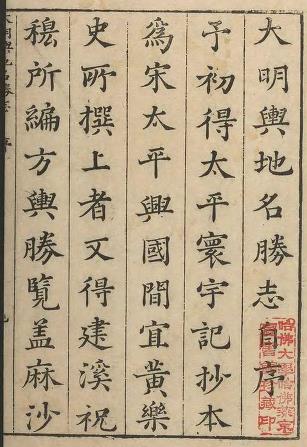 大明輿地名勝志自序
予初得太平寰宇記抄本
為宋太平興國間宜黃樂
史所撰上者又得建溪祝
穆所編方輿勝覽盖麻沙